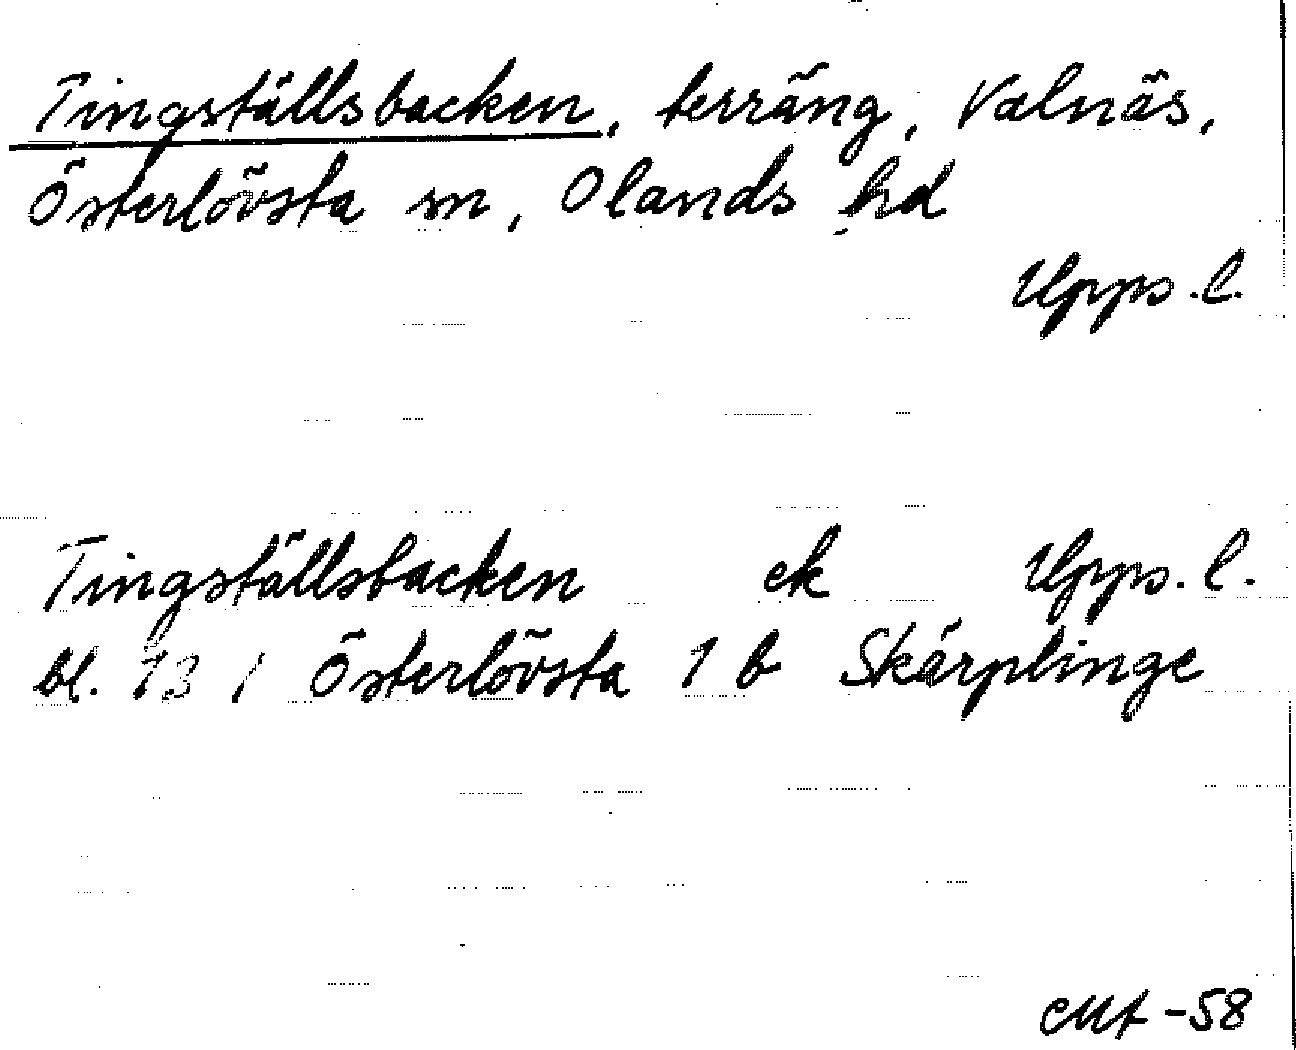 Tingställsbacken, terräng, Valnäs,
Österlövsta sn, Olands hd
Upps. l.
Tingställsbacken ek Upps. l.
bl. 13 I Österlövsta 1 b Skärplinge
-58